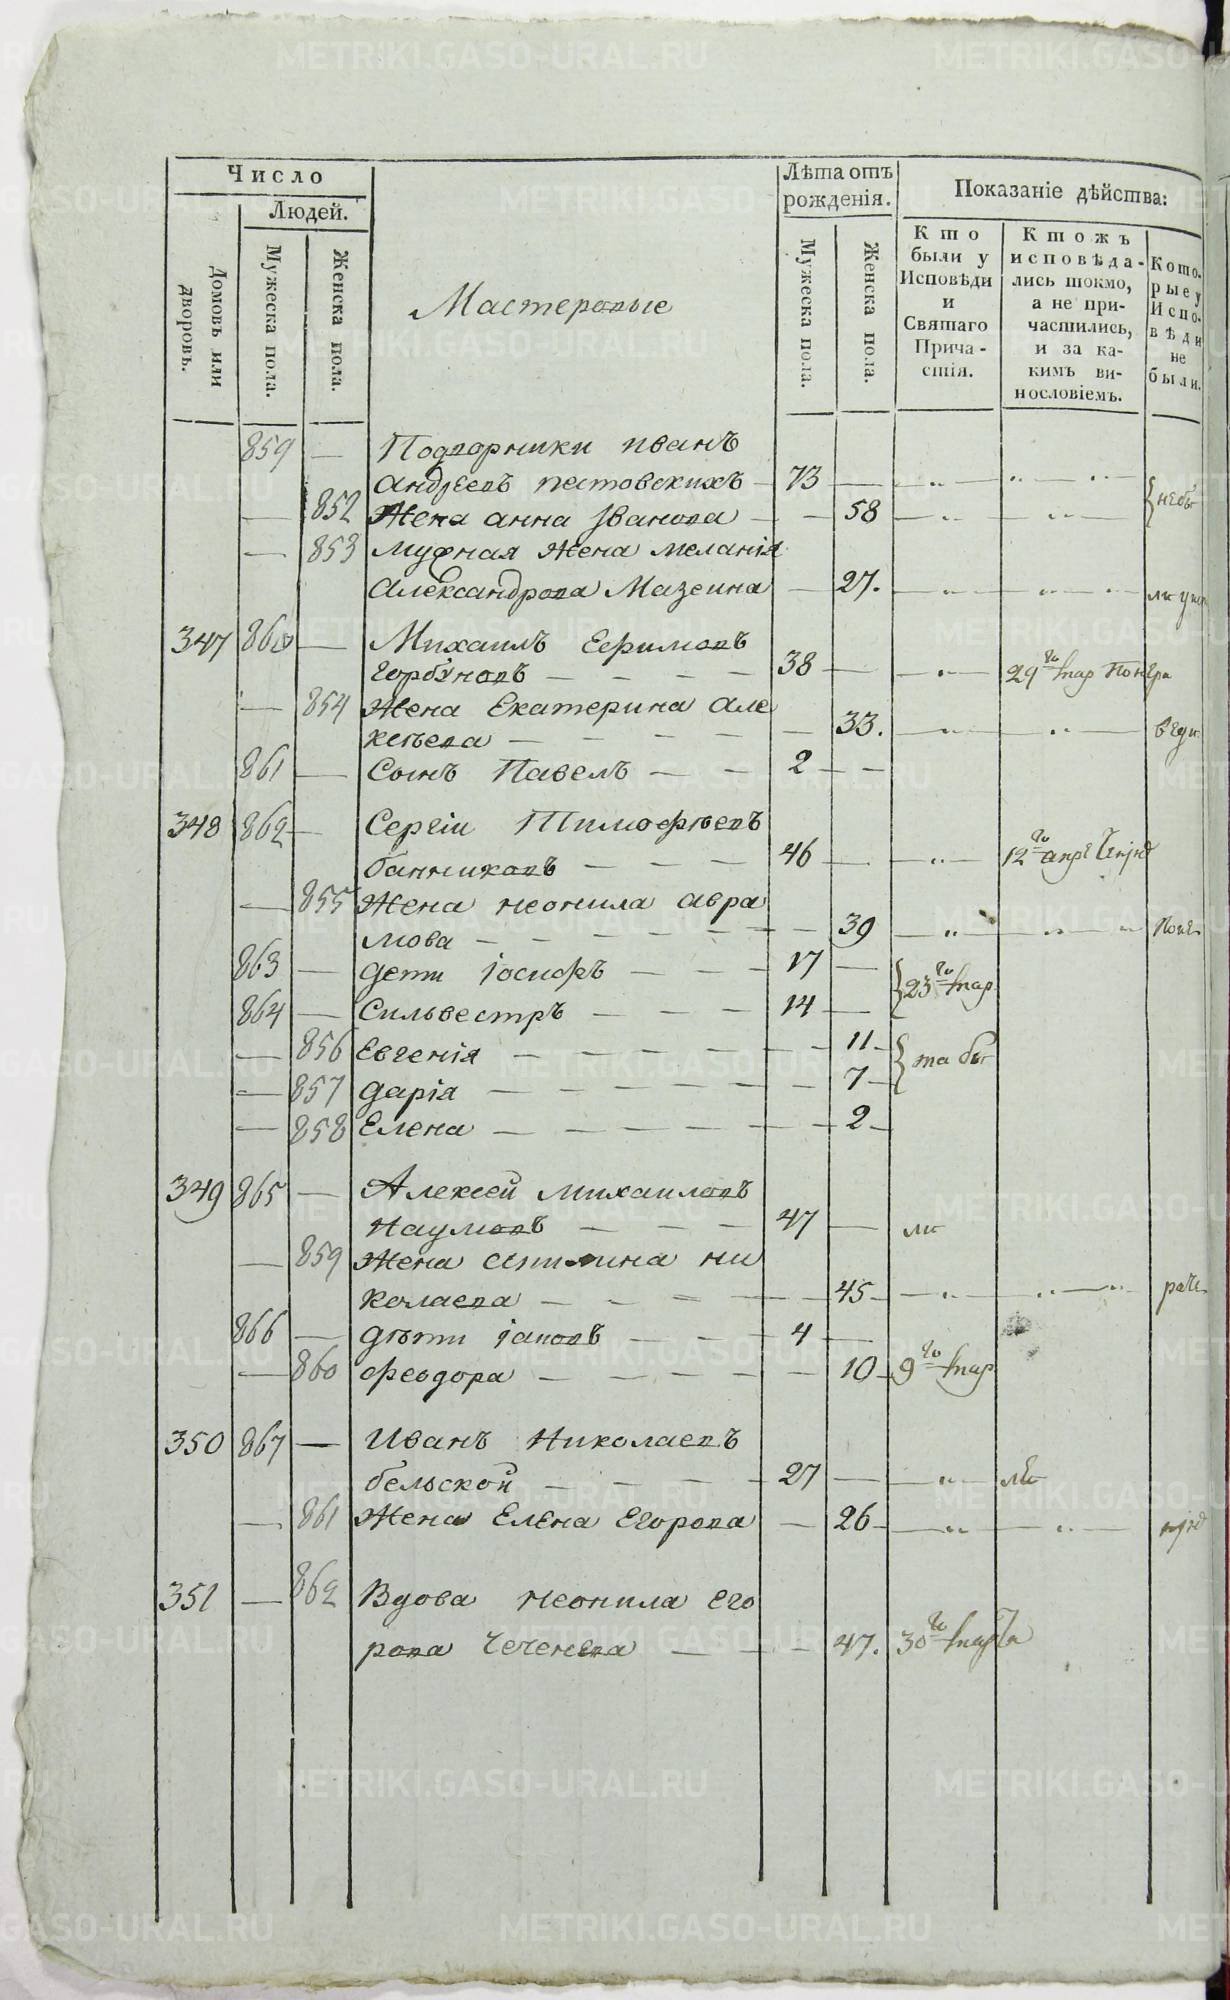 Число
Людей.
Домовъ или дворовъ.
Мужеска пола.
Женска пола.
Мастеровые
Лѣта отъ рожденія.
Мужеска пола.
Женска пола.
Показаніе дѣйства:
Кто были у Исповѣди и Святаго Прича-стія.
Ктожъ исповѣда-лись токмо, а не при-частились, и за ка-кимъ ви-нословіемъ.
Кото-рые у Испо-вѣди не были.
859 — Подворники иванъ
андреевъ пестовскихъ — 73 —
— 852 Жена анна Iванова — — 58
— 853 Мужная жена меланія
Александрова Мазеина — 27.
347 860 — Михаилъ Ефимовъ
горбуновъ — — — — 38 — 29го мар
— 854 Жена Екатерина але
кеѣева — — — — — 33.
861 — Сынъ Павелъ — — 2 — —
348 862 — Сергіи Тимофѣевъ
банниковъ — — — 46 — 12го апре
— 855 Жена неонила авра
мова — — — — — — 39
863 — дети іосифъ — — — 17 —
864 — Сильвестръ — — — 14 — 23го мар
— 856 Евгенія — — — — — 11
— 857 дарія — — — — — 7
— 858 Елена — — — — — 2
349 865 — Алексей михаиловъ
Наумовъ — — — 47 —
— 859 Жена ни
колаева — — — — 45
866 — дѣти — — — 4 —
— 860 феодора — — — — — 10 9го мар
350 867 — Иванъ Николаевъ
бельской — — — — 27 —
— 861 Жена Елена Егорова — 26
351 — 862 Вдова неонила его
рова Чеченева — — — 47. 30го мар
METRIKI.GASO-URAL.RU